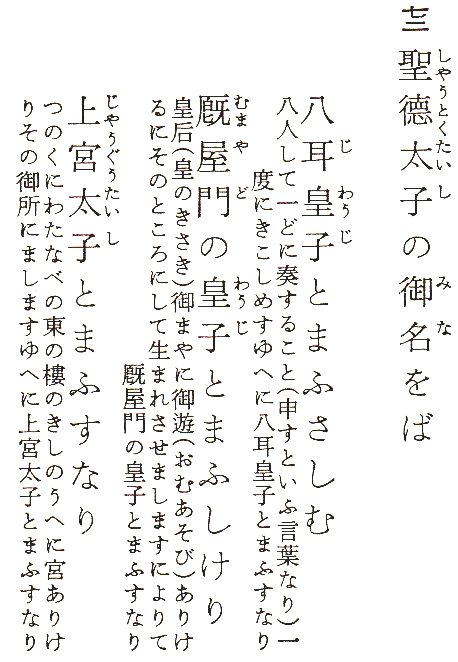 七三 聖德太子の御名をば
しやうとくたいし みな
八耳皇子とまふさしむ
じ わうじ
八人して一どに奏すること(申すといふ言葉なり)一
度にきこしめすゆへに八耳皇子とまふすなり
厩屋門の皇子とまふしけり
むまやど わうじ
皇后(皇のきさき)御まやに御遊(おむあそび)ありけ
るにそのところにして生まれさせましますによりて
厩屋門の皇子とまふすなり
上宮太子とまふすなり
じやうぐうたいし
つのくにわたなべの東の樓のきしのうへに宮ありけ
りその御所にましますゆへに上宮太子とまふすなり